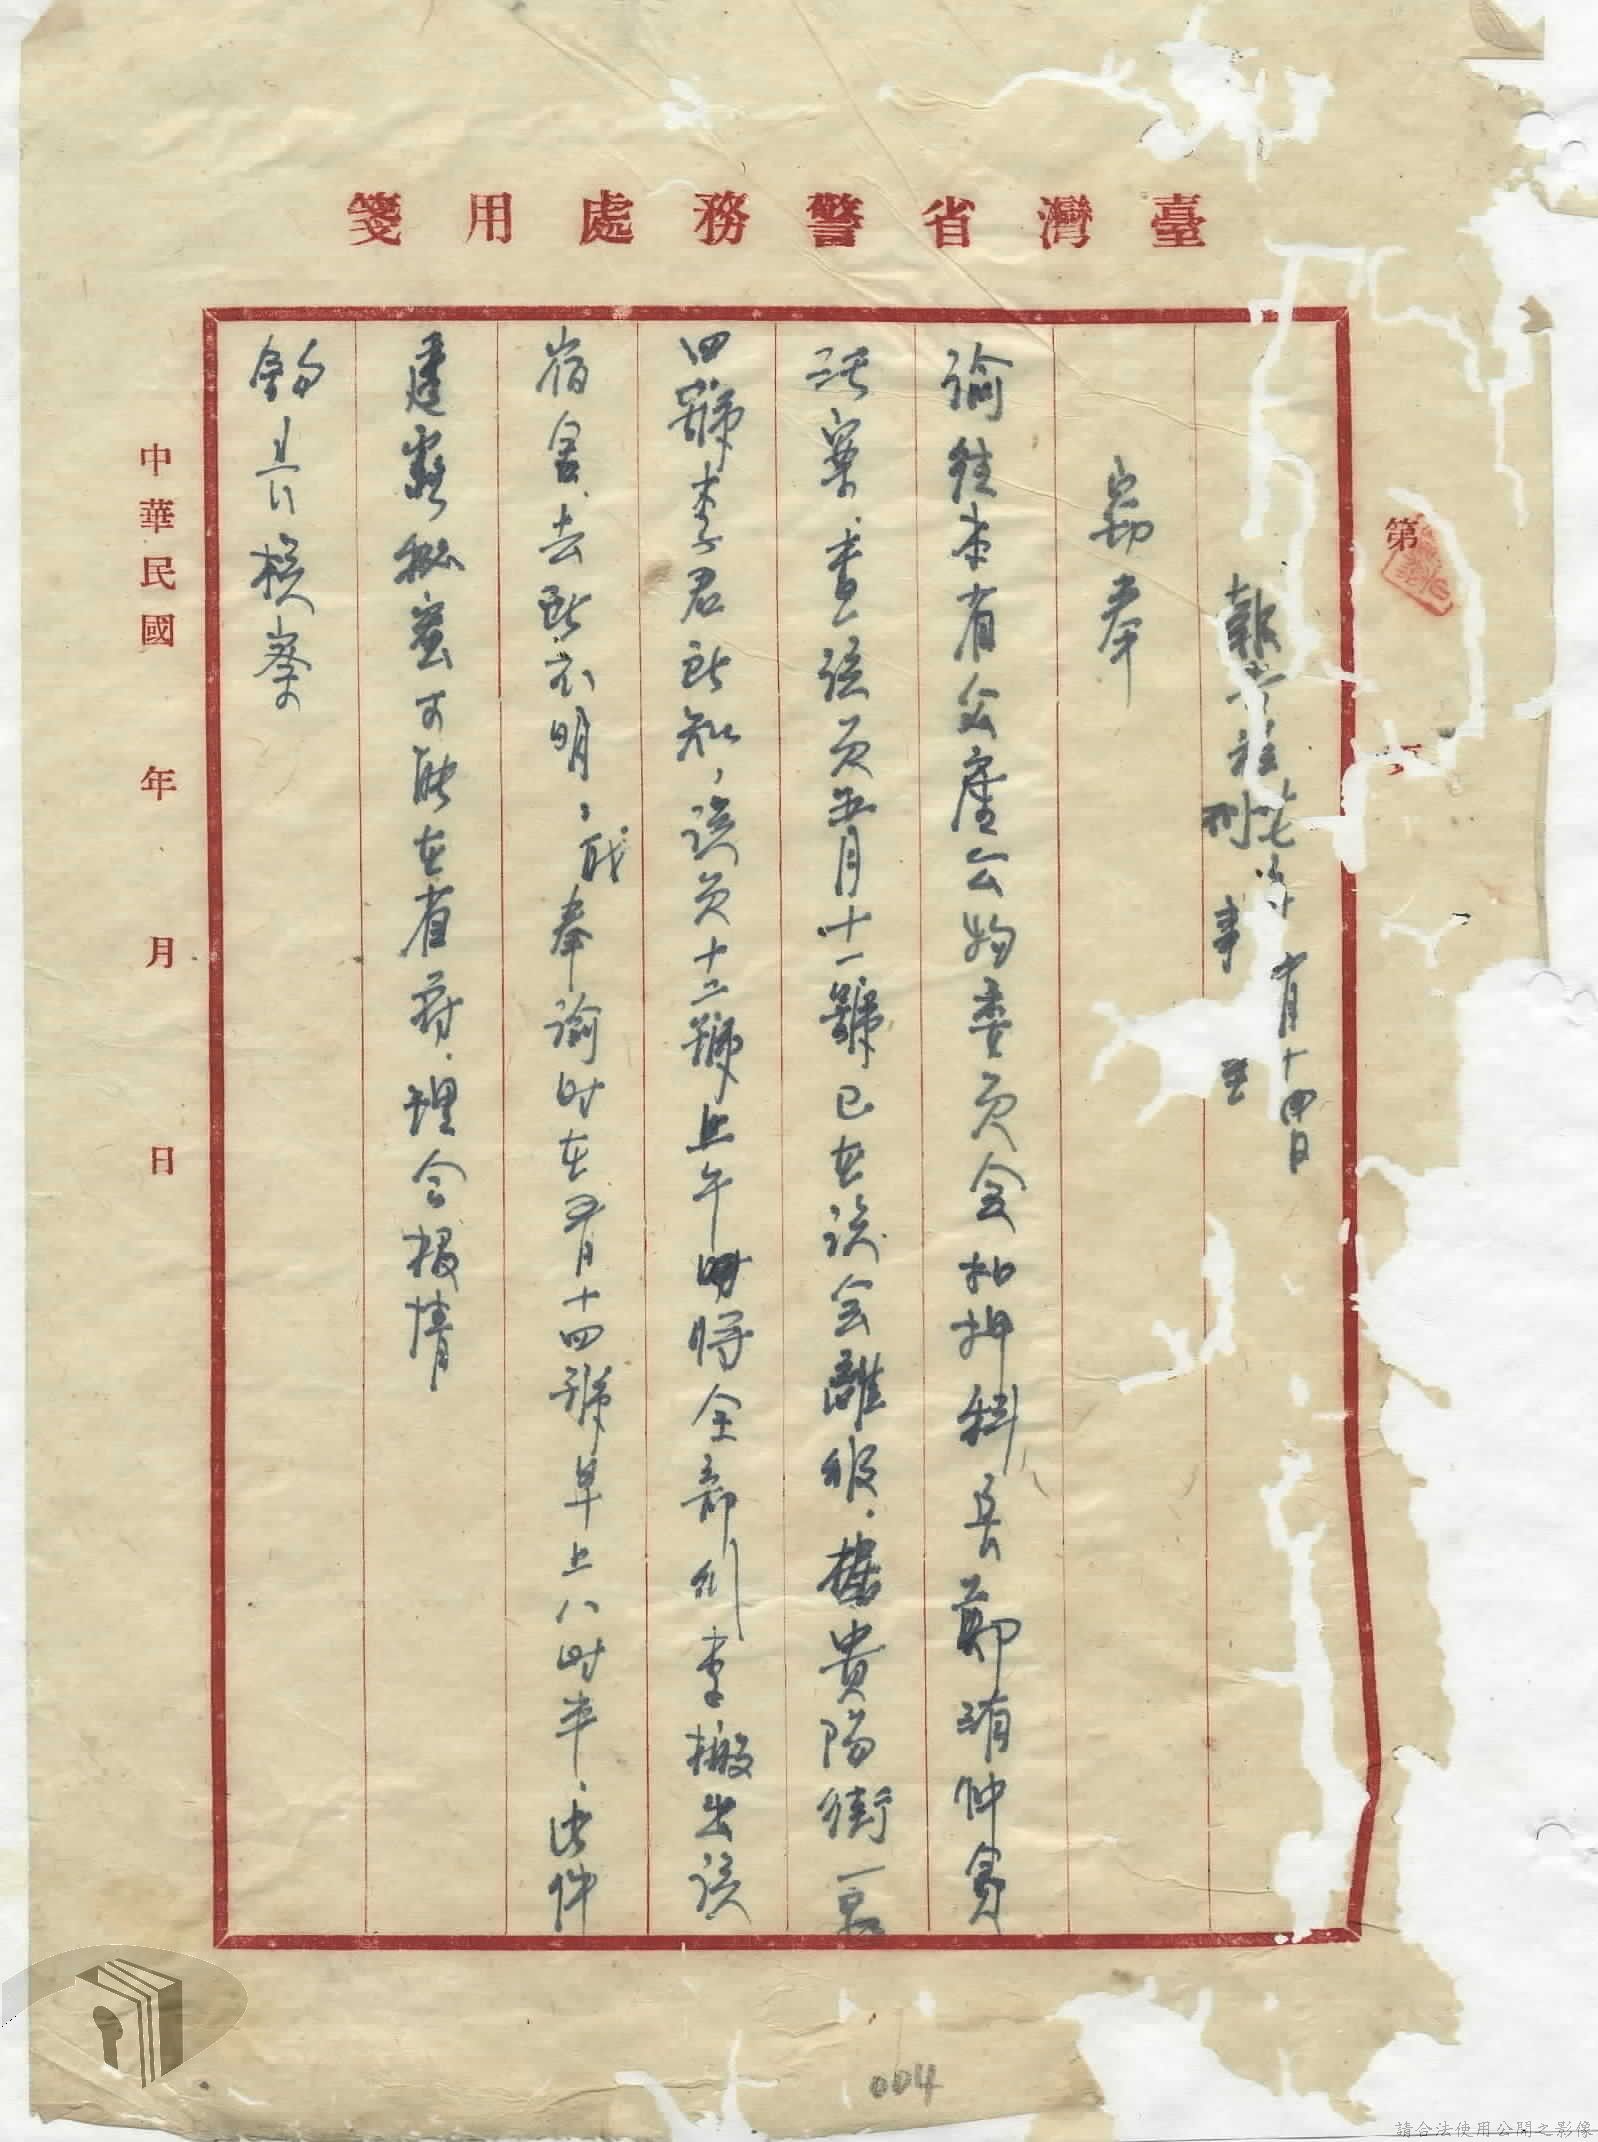 臺灣省警務處用箋
第 頁
報告 於 五月十四日
刑事室
竊奉
諭往本省公產公物委員會拘押科長鄭瑣仲貪
污案、查該員五月十一號已在該會離職、據貴陽街一
四號李君所知、該員十二號上午時將全部行李搬出該
宿舍、去所不明、職奉諭時在五月十四號早上八時半、此件
遲 秘密可能在省府、理合報情
鈞長核察
中華民國 年 月 日
004
請合法使用公開之影像